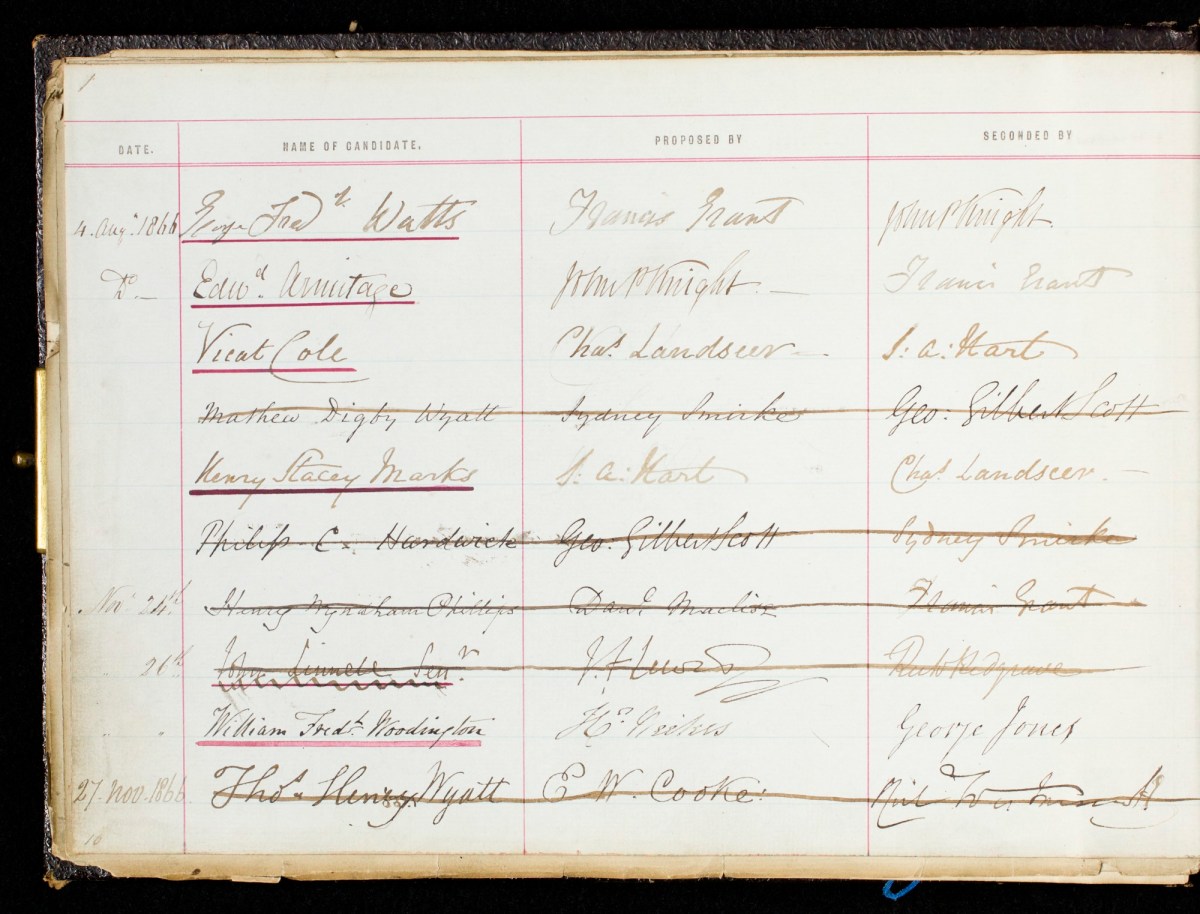 1
DATE. NAME OF CANDIDATE. PROPOSED BY SECONDED BY
4. Aug. 1866 George Fredk. Watts Francis Grant John P Knight.
Do. — Edwd. Armitage John P Knight. — Francis Grant
Vicat Cole Chas. Landseer — S: A: Hart
Mathew Digby Wyatt Sydney Smirke Geo: Gilbert Scott
Henry Stacey Marks S: A: Hart Chas. Landseer. —
Philip C. Hardwick Geo. Gilbert Scott Sydney Smirke
Nov. 24th Henry Wyndham Phillips Danl. Maclise Francis Grant
26th John Linnell Senr. J. F Lewis Richd Redgrave
" " William Fredk. Woodington H. Weekes George Jones
27. Nov. 1866 Thos. Henry Wyatt E. W. Cooke.
10